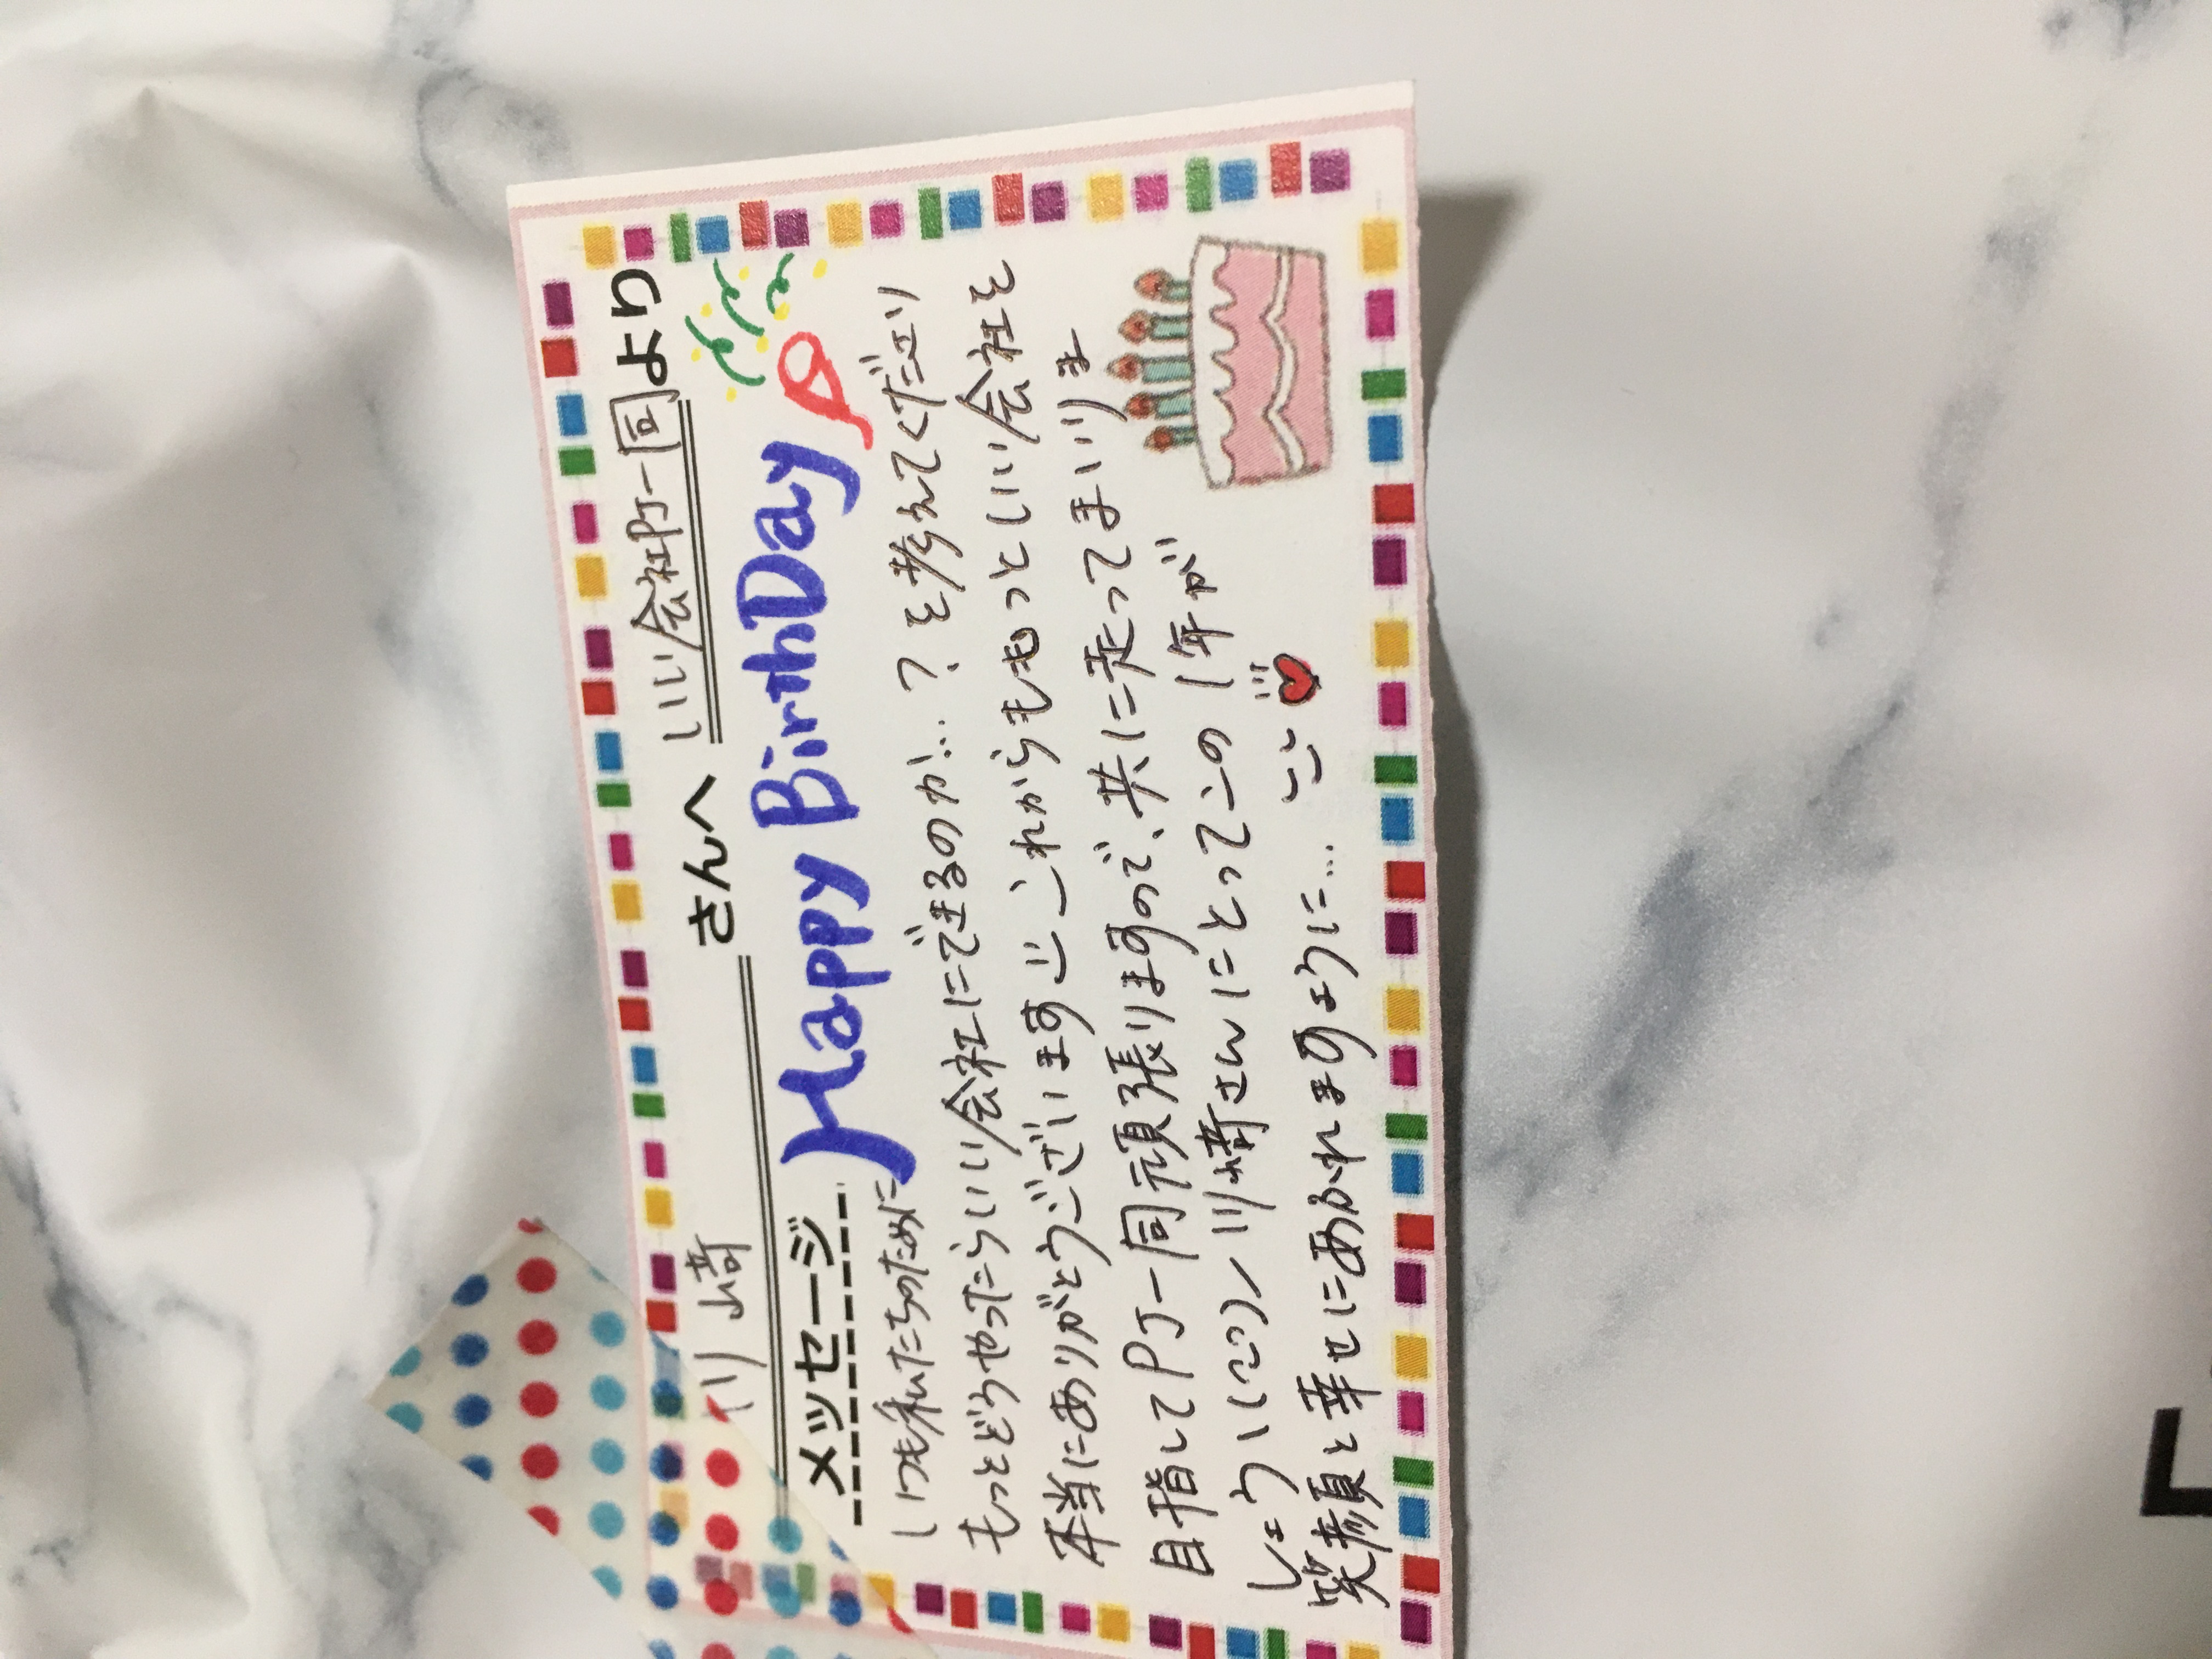 川崎 さんへ いい会社PJ一同 より
メッセージ Happy BirthDay
いつも私たちのために
もっとどうやったらいい会社にできるのか…？を考えてくださり
本当にありがとうございます!! これからももっといい会社を
目指してPJ一同頑張りますので、共に走ってまいりま
しょう\(^^)/ 川崎さんにとってこの1年が
笑顔と幸せにあふれますように…